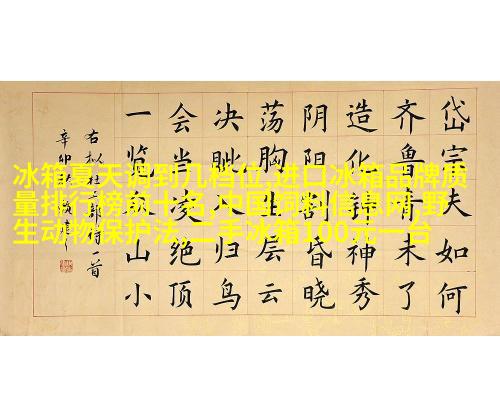 冰箱夏天调到几档位,进口冰箱品牌质
量排行榜前十名,中国饲料信息网,野
生动物保护法,二手冰箱100元一台
岱宗夫如何
齐鲁青未了
造化钟神秀
阴阳割昏晓
荡胸生层云
决眦入归鸟
会当凌绝顶
一览众山小
右拟杜工部诗一首
辛卯